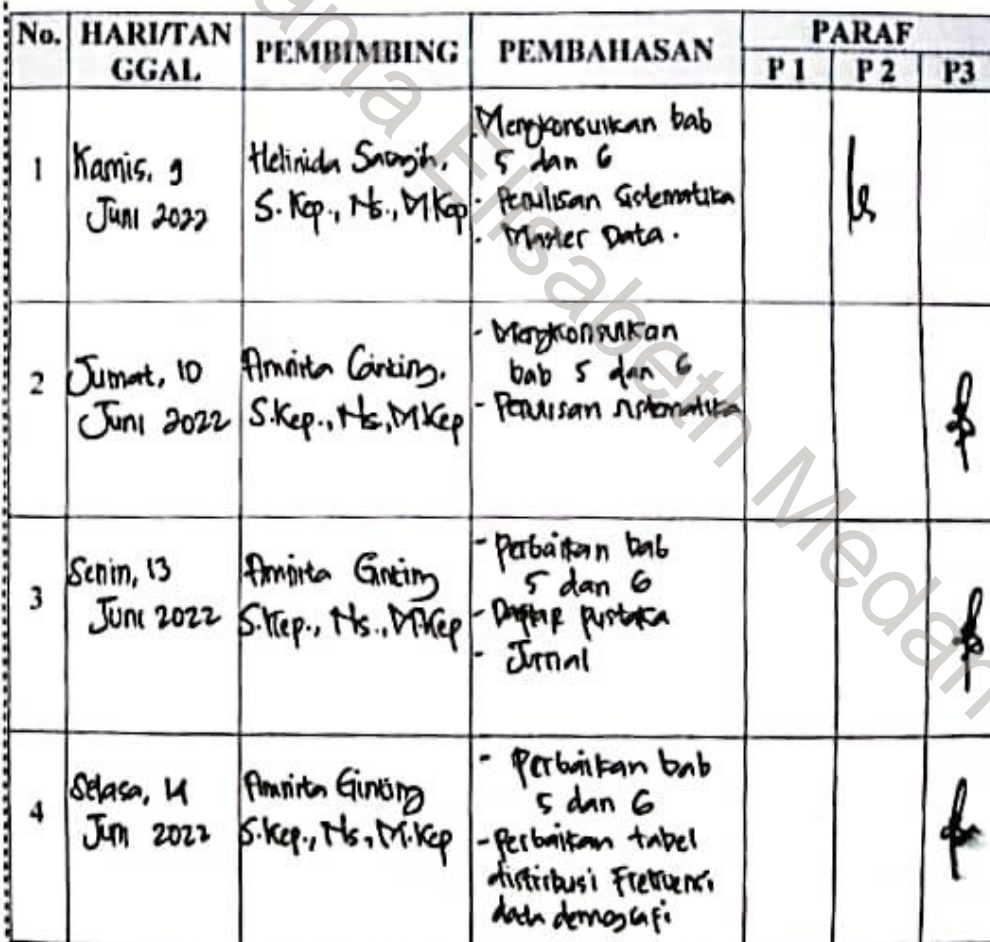 No. HARI/TAN PEMBIMBING PEMBAHASAN PARAF
GGAL P 1 P 2 P3
1
Kamis, 9
Juni 2022
Helinida
S. Kep., Ns., M.Kep
Mengkonsulkan bab
5 dan 6
- Penulisan Sistematika
- Master Data.
2
Jumat, 10
Juni 2022
Amnita Ginting.
S.Kep., Ns, M.Kep
- Mengkonsulkan
bab 5 dan 6
- Penulisan sistematika
3
Senin, 13
Juni 2022
Amnita Ginting
S.Kep., Ns., M.Kep
- Perbaikan bab
5 dan 6
- Daftar pustaka
- Jurnal
4
Selasa, 14
Juni 2022
Amnita Ginting
S.Kep., Ns, M.Kep
- Perbaikan bab
5 dan 6
- Perbaikan tabel
distribusi Frekuensi
data demografi
Elisabeth Medan